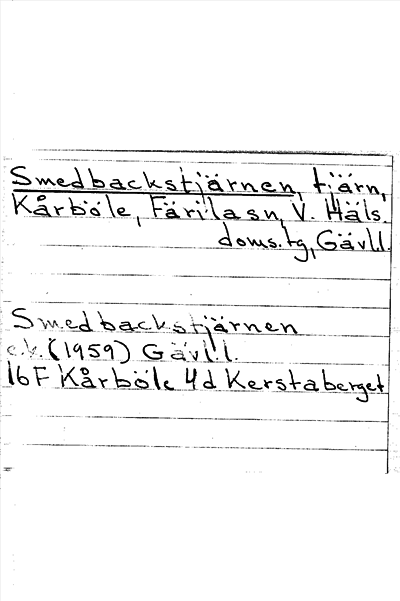 Smedbackstjärnen, tjärn,
Kårböle, Färila sn, V. Häls.
doms.tg, Gävl.l.
Smedbackstjärnen
e.k. (1959) Gävl.l.
16F Kårböle 4d Kerstaberget